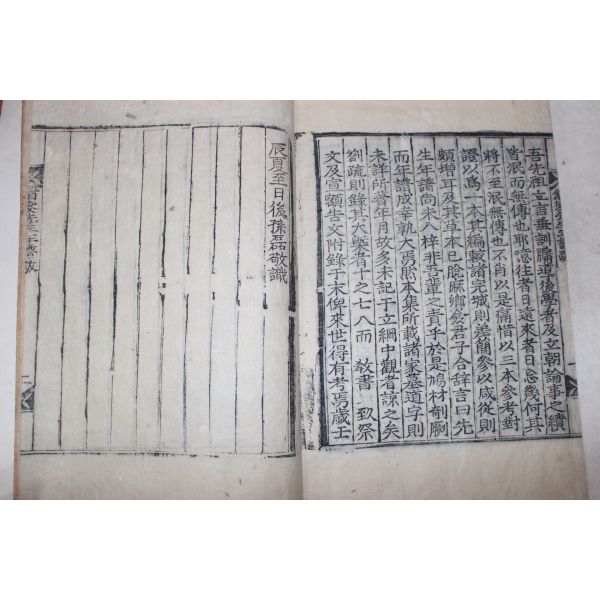 吾先祖立言垂訓牖道後學者及立朝論事之蹟
皆泯而無傳也耶噫往者日遠來者日忘幾何其
將不至泯無傳也不肖以是痛惜以三本參考對
證以爲一本其編較諸完城則差簡參以咸從則
頗增耳及其草本已脫麻鄉僉君子合辞言曰先
生年譜尚未入梓非吾輩之責乎於是鳩材剞劂
而年譜成幸孰大焉然本集所載諸家墓道字則
未詳所著年月故多未記于立綱中觀者諒之矣
劄疏則錄其大槩者十之七八而 教書 致祭
文及宣額告文附錄于末俾來世得有考焉歲壬
辰夏至日後孫磊敬識